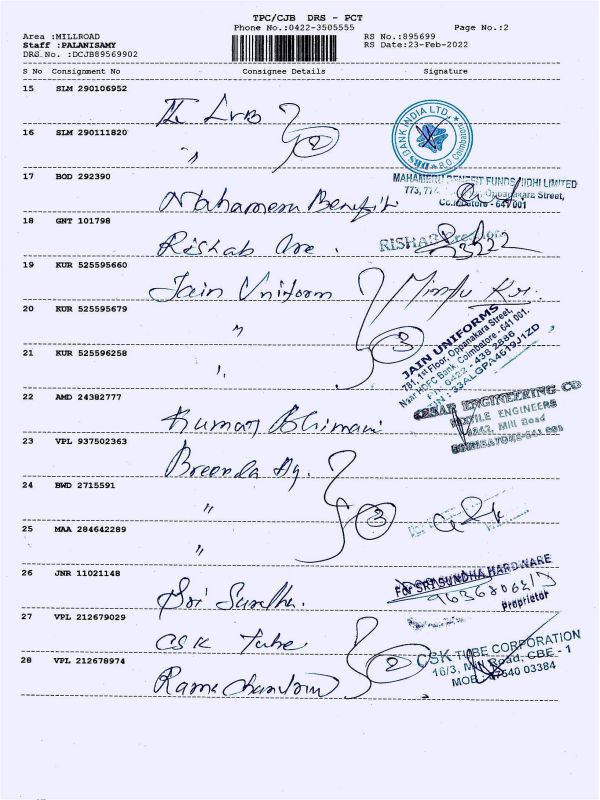 TPC/CJB DRS - PCT
Phone No.:0422-3505555 Page No.:2
Area :MILLROAD RS No.:895699
Staff :PALANISAMY RS Date:23-Feb-2022
DRS.No. :DCJB89569902
S No Consignment No Consignee Details Signature
15 SLM 290106952
BANK INDIA LTD.,
16 SLM 290111820
〃 2
17 BOD 292390
MAHAMERU BENEFIT FUNDS NIDHI LIMITED
773, Oppanakara Street,
Coimbatore - 641 001
Mahameru Benefit
18 GNT 101798
RISHAB Creation
Rishab Cre.
19 KUR 525595660
Jain Uniform
20 KUR 525595679
〃 3
JAIN UNIFORMS
781, 1st Floor, Oppanakara Street,
Near HDFC Bank, Coimbatore - 641 001.
Ph: 0422 - 438 2886
21 KUR 525596258
〃
22 AMD 24382777
ENGINEERING CO
TEXTILE ENGINEERS
Mill Road
COIMBATORE-641 001
Kumar Bhimani
23 VPL 937502363
24 BWD 2715591
〃 3
25 MAA 284642289
〃
26 JNR 11021148
For SRI SUNDHA HARDWARE
Proprietor
Sri Sundha.
27 VPL 212679029
CSK Tube
CSK TUBE CORPORATION
16/3, Mill Road, CBE - 1
28 VPL 212678974
2